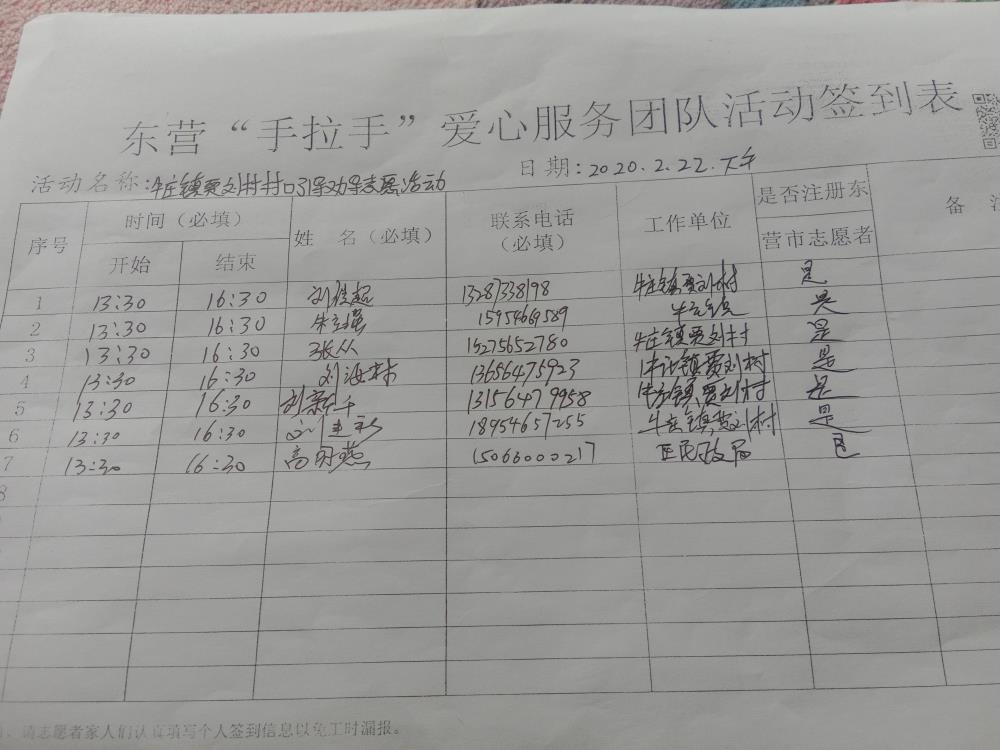 东营“手拉手”爱心服务团队活动签到表
活动名称:牛庄镇贾刘村村口引导劝导志愿活动 日期:2020.2.22.下午
序号 时间（必填） 姓 名（必填） 联系电话（必填） 工作单位 是否注册东营市志愿者 备
开始 结束
1 13:30 16:30 刘 13287338198 牛庄镇贾刘村 是
2 13:30 16:30 朱 15954669589 是
3 13:30 16:30 张从 15275652780 牛庄镇贾刘村 是
4 13:30 16:30 刘海林 13656475923 牛庄镇贾刘村 是
5 13:30 16:30 刘 13156479958 牛庄镇贾刘村 是
6 13:30 16:30 刘 18954657255 牛庄镇贾刘村 是
7 13:30 16:30 高 燕 15066000217 区民政局 是
8
请志愿者家人们认真填写个人签到信息以免工时漏报。